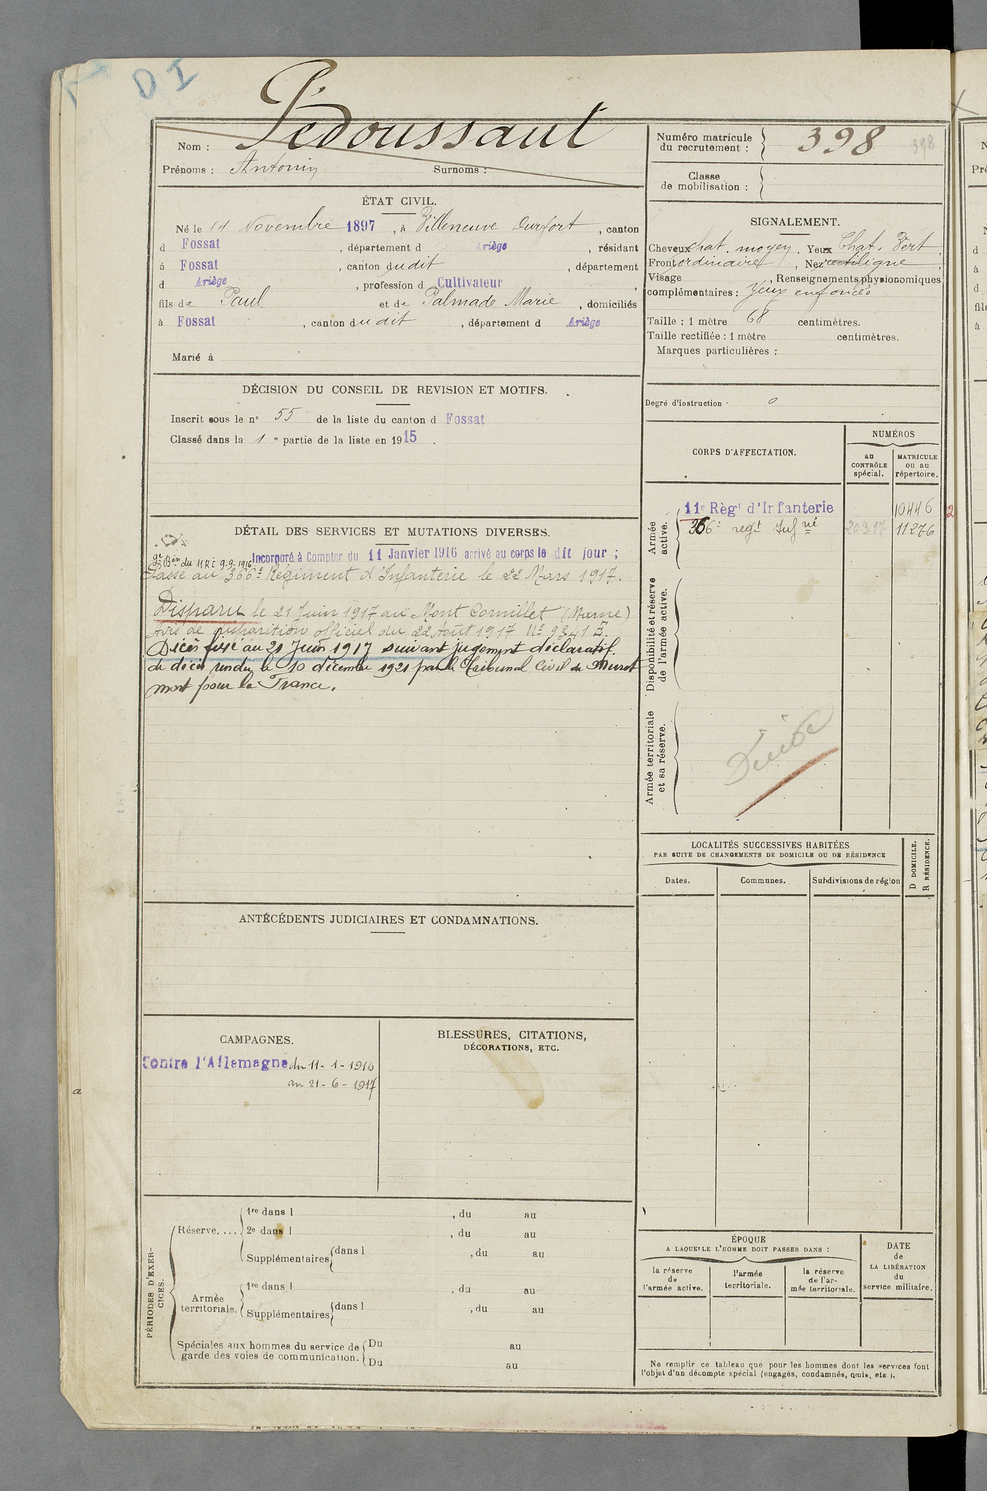 D I
Nom : Pédoussaut
Prénoms : Antonin Surnoms :
Numéro matricule du recrutement : 398 398
Classe de mobilisation :
ÉTAT CIVIL.
Né le 14 Novembre 1897, à Villeneuve Durfort, canton
d Fossat, département d Ariège, résidant
à Fossat, canton dudit, département
d Ariège, profession d Cultivateur
fils de Paul et de Palmade Marie, domiciliés
à Fossat, canton dudit, département d Ariège
Marié à
SIGNALEMENT.
Cheveux chat. moyen, Yeux Chat. Vert
Front ordinaire, Nez rectiligne
Visage , Renseignements physionomiques
complémentaires : Yeux enfoncés
Taille : 1 mètre 68 centimètres.
Taille rectifiée : 1 mètre centimètres.
Marques particulières :
Degré d'instruction : 0
DÉCISION DU CONSEIL DE REVISION ET MOTIFS.
Inscrit sous le n° 55 de la liste du canton d Fossat
Classé dans la 1 e partie de la liste en 1915.
CORPS D'AFFECTATION.
NUMÉROS
au CONTRÔLE spécial.
MATRICULE ou au répertoire.
Armée active.
11e Régt d'Infanterie 10446
366e regt Infrie 20.3.17 11276
Disponibilité et réserve de l'armée active.
Armée territoriale et sa réserve.
DÉTAIL DES SERVICES ET MUTATIONS DIVERSES.
Incorporé à Compter du 11 Janvier 1916 arrivé au corps le dit jour ;
du 11 RI 9.9.1916
Passé au 366e Régiment d'Infanterie le 22 Mars 1917.
Disparu le 21 Juin 1917 au Mont Cornillet (Marne)
avis de disparition officiel du 22 Août 1917 N° 9341 Z.
Décès fixé au 21 Juin 1917 suivant jugement déclaratif
de décès rendu le 10 décembre 1921 par le Tribunal Civil de Muret
mort pour la France.
LOCALITÉS SUCCESSIVES HABITÉES
PAR SUITE DE CHANGEMENTS DE DOMICILE OU DE RÉSIDENCE
Dates.
Communes.
Subdivisions de région
D DOMICILE.
R RÉSIDENCE.
ANTÉCÉDENTS JUDICIAIRES ET CONDAMNATIONS.
CAMPAGNES.
Contre l'Allemagne du 11-1-1916
au 21-6-1917
BLESSURES, CITATIONS,
DÉCORATIONS, ETC.
PÉRIODES D'EXERCICES.
Réserve....
1re dans l , du au
2e dans l , du au
Supplémentaires dans l , du au
Armée territoriale.
1re dans l , du au
Supplémentaires dans l , du au
Spéciales aux hommes du service de garde des voies de communication.
Du au
Du au
ÉPOQUE
A LAQUELLE L'HOMME DOIT PASSER DANS :
la réserve de l'armée active.
l'armée territoriale.
la réserve de l'armée territoriale.
DATE de LA LIBÉRATION du service militaire.
Ne remplir ce tableau que pour les hommes dont les services font
l'objet d'un décompte spécial (engagés, condamnés, omis, etc.).